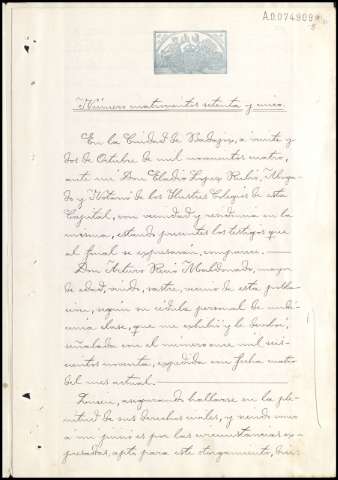 A.0.074.909
Número matrimonios setenta y cinco.
En la Ciudad de Badajoz, a veinte y
dos de Octubre de mil novecientos cuatro,
ante mí Don Eladio Lopez Rubio, Aboga-
do y Notario de los Ilustres Colegios de esta
Capital, con vecindad y residencia en la
misma, estando presentes los testigos que
al final se expresarán, comparece.
Don Arturo Reino Maldonado, mayor
de edad, viudo, sastre, vecino de esta pobla-
cion, según su cédula personal de undé-
cima clase, que me exhibe y le devolví,
señalada con el número once mil seis-
cientos noventa, expedida con fecha cuatro
del mes actual.
asegurando hallarse en la ple-
nitud de sus derechos civiles, y
a mi juicio es por las circunstancias ex-
presadas, apto para este otorgamiento,